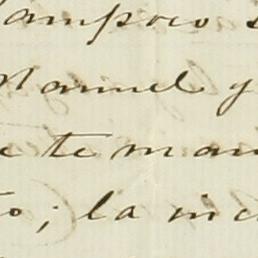 ampoco
Manuel y
te man
to; la in